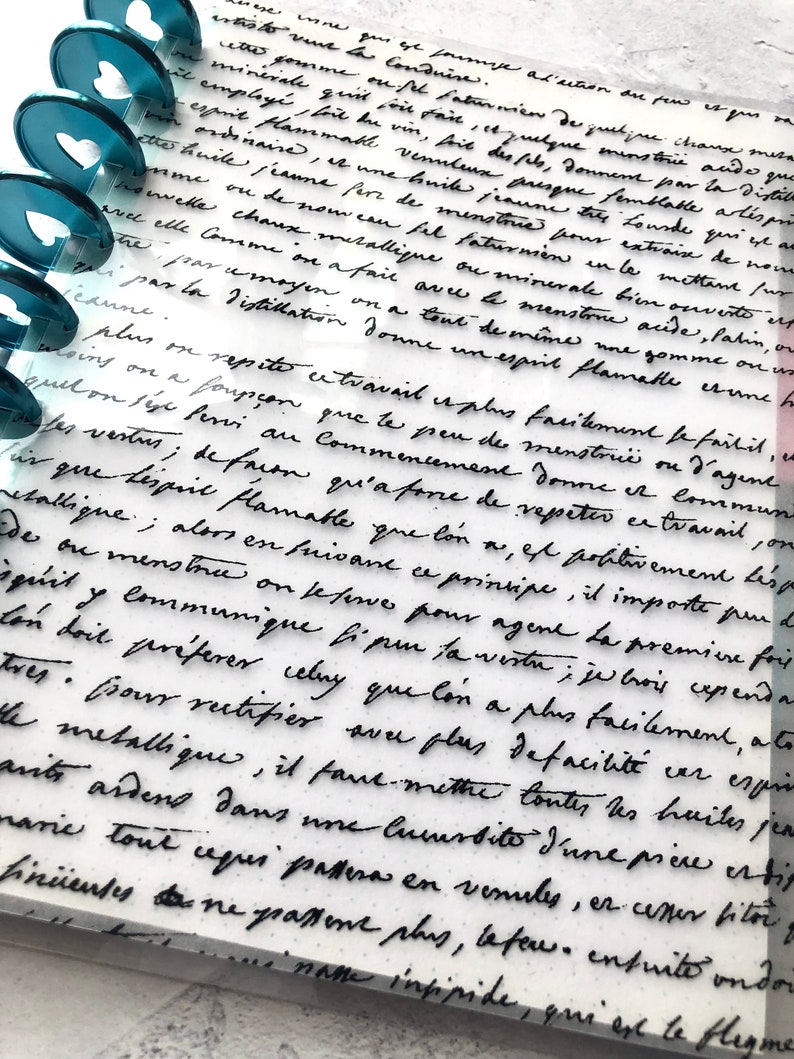 qui est soumise a l'action du feu et qui
artiste veut la Conduire.
cette gomme ou sel saturnien de quelque chaux meta
minérale qu'il soit fait, et quelque menstrüe acide que
employé, soit du vin, soit des sels, donnent par la distill
esprit flammable venuleux presque semblable a l'espri
vin ordinaire, et une huile jeaune tres Lourde qui est au
cette huile jeaune sert de menstrue pour extraire de nou
gomme ou de nouveau sel saturnien en le mettant sur
nouvelle chaux metallique ou minerale bien ouverte et
avec elle Comme on a fait avec le menstrue acide,
par ce moyen on a tout de même une gomme ou un
qui par la distillation donne un esprit flamable et une h
jeaune.
plus on repete ce travail et plus facilement se fait il, et
moins on a soupçon que le peu de menstrüe ou d'agent
quel on s'est servi au Commencement donne et commun
ses vertus; de façon qu'a force de repeter ce travail, on
que l'ésprit flamable que l'on a, est positivement l'ésp
metallique; alors en suivant ce principe, il importe peu d
ou menstrue on se serve pour agent la premiere fois
qu'il y Communique si peu sa vertu; je crois cependa
l'on doit préferer celuy que l'on a plus facilement, a to
tres. pour rectifier avec plus de facilité cet esprit
metallique, il faut mettre toutes les huiles jea
ardens dans une Cucurbite d'une piéce et dis
marie tout ce qui passera en venules, et cesser sitôt q
sinüeuses ne passent plus, le feu. ensuite on doi
passe insipide, qui est le flegme